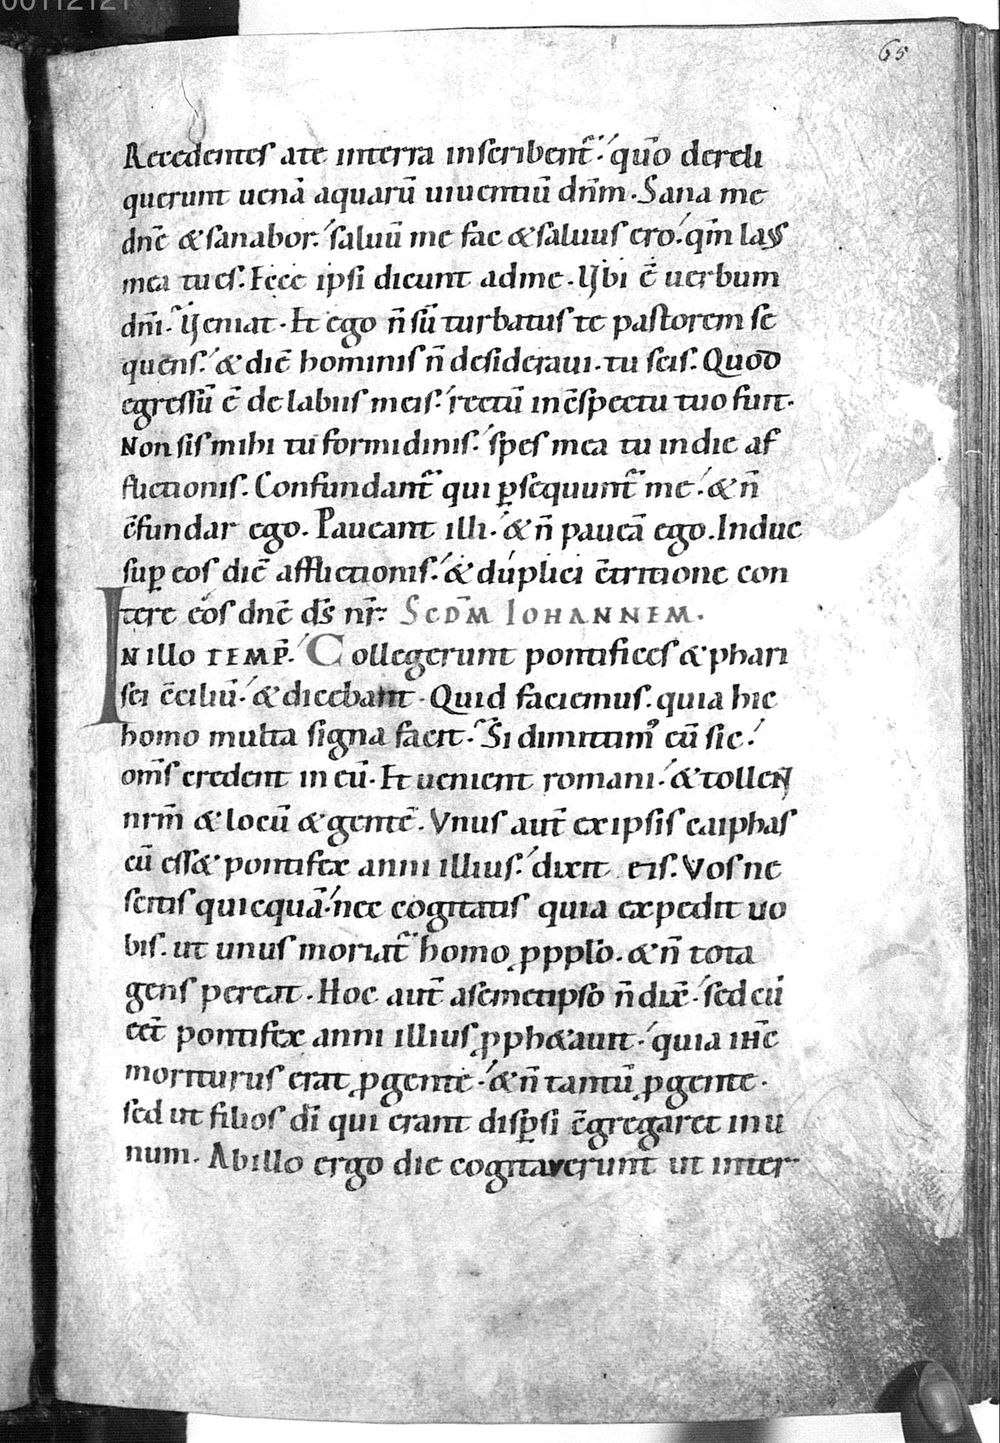 00112121
65
Recedentes a te in terra inscribent᷑. qūo dereli
querunt uenā aquarū uiuentiū dn̄m. Sana me
dn̄e & sanabor. saluū me fac & saluus ero. qm̄ laus
mea tu es. Ecce ipsi dicunt ad me. Ubi ē uerbum
dn̄i. Veniat. Et ego n̄ sū turbatus te pastorem se
quens. & diē hominis n̄ desideraui. tu scis. Quod
egressū ē de labiis meis. rectū in c̄spectu tuo fuit.
Non sis mihi tu formidinis. spes mea tu in die af
flictionis. Confundant᷑ qui p̱sequunt᷑ me. & n̄
c̄fundar ego. Paueant illi. & n̄ paueā ego. Induc
sup̱ eos diē afflictionis. & duplici c̄tritione con
tere eos dn̄e ds̄ nr̄. SCDM̄ IOHANNEM.
IN illo TEMP̄. Collegerunt pontifices & phari
sei c̄ciliū. & dicebant. Quid faciemus. quia hic
homo multa signa facit. Si dimittimꝰ eū sic.
om̄s credent in eū. Et uenient romani. & tollen̄
nrm̄ & locū & gentē. Vnus aut̄ ex ipsis caiphas
cū ess& pontifex anni illius. dixit eis. Vos ne
scitis quicquā. nec cogitatis quia expedit uo
bis. ut unus moriat᷑ homo ꝓ pplo. & n̄ tota
gens pereat. Hoc aut̄ a semetipso n̄ dix̄. sed cū
eēt pontifex anni illius ꝓph&auit. quia ih̄c
moriturus erat ꝓ gente. & n̄ tantū ꝓ gente.
sed ut filios dī qui erant disp̱si c̄gregaret in u
num. Ab illo ergo die cogitauerunt ut inter